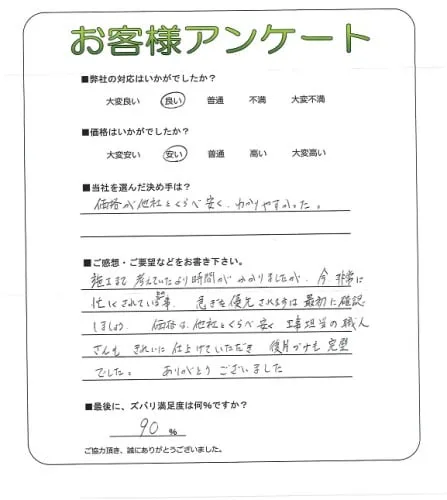 お客様アンケート
■弊社の対応はいかがでしたか?
大変良い 良い 普通 不満 大変不満
■価格はいかがでしたか?
大変安い 安い 普通 高い 大変高い
■当社を選んだ決め手は?
価格が他社とくらべ安く、わかりやすかった。
■ご感想・ご要望などをお書き下さい。
施工まで考えていたより時間がかかりましたが、今非常に
忙しくされている事 急ぎを優先されますは最初に確認
しましょう 価格は、他社とくらべ安く 工事担当の職人
さんも きれいに仕上げていただき 後片づけも完璧
でした。 ありがとうございました
■最後に、ズバリ満足度は何%ですか?
90 %
ご協力頂き、誠にありがとうございました。